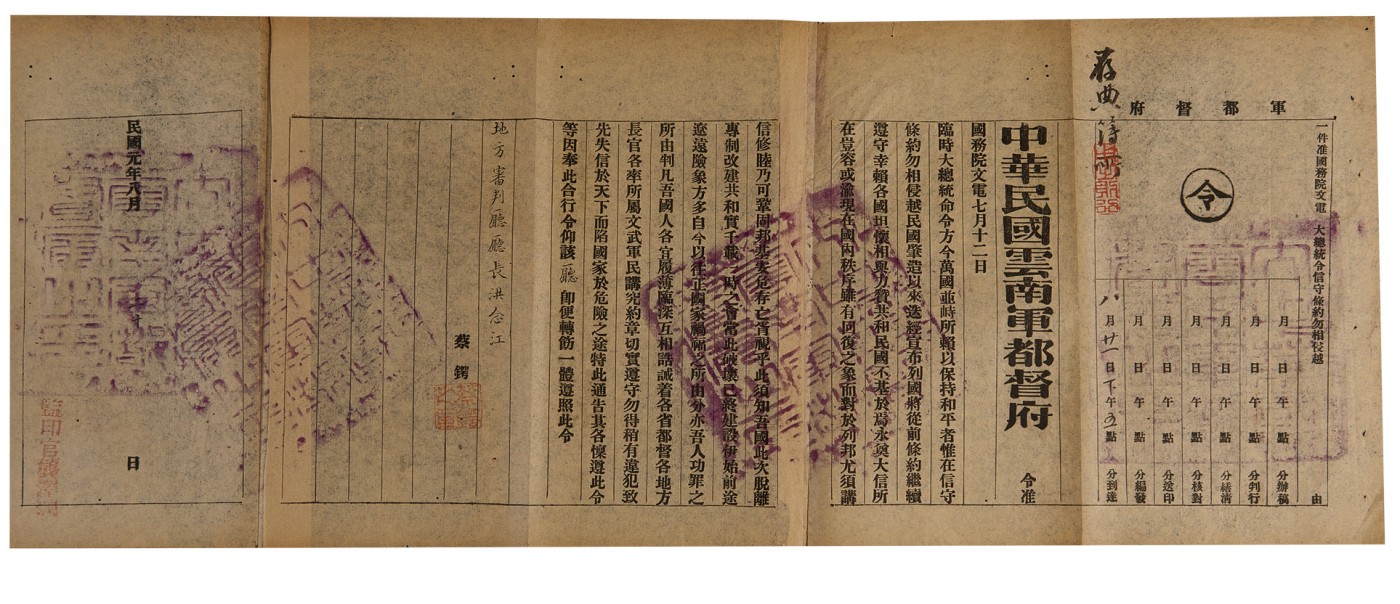 軍都督府
一件准國務院文電 大總統令信守條約勿相侵越 由
令
月 日 午 點 分辦稿
月 日 午 點 分判行
月 日 午 點 分繕清
月 日 午 點 分核對
月 日 午 點 分送印
月 日 午 點 分編發
八月廿一日下午五點 分到達
存典簿
中華民國雲南軍都督府 令准
國務院文電七月十二日
臨時大總統命令方今萬國並峙所賴以保持和平者惟在信守
條約勿相侵越民國肇造以來迭經宣布列國將從前條約繼續
遵守幸賴各國坦懷相與力贊共和民國丕基於焉永奠大信所
在豈容或渝現在國內秩序雖有回復之象而對於列邦尤須講
信修睦乃可鞏固邦基安危存亡胥視乎此須知吾國此次脫離
專制改建共和實千載一時之會當此破壞已終建設伊始前途
遼遠險象方多自今以往正國家禍福之所由分亦吾人功罪之
所由判凡吾國人各宜履薄臨深互相誥誡着各省都督各地方
長官各率所屬文武軍民講究約章切實遵守勿得稍有違犯致
先失信於天下而陷國家於危險之途特此通告其各懍遵此令
等因奉此合行令仰該廳即便轉飭一體遵照此令
地方審判廳廳長洪念江
蔡鍔
民國元年八月 日
監印官